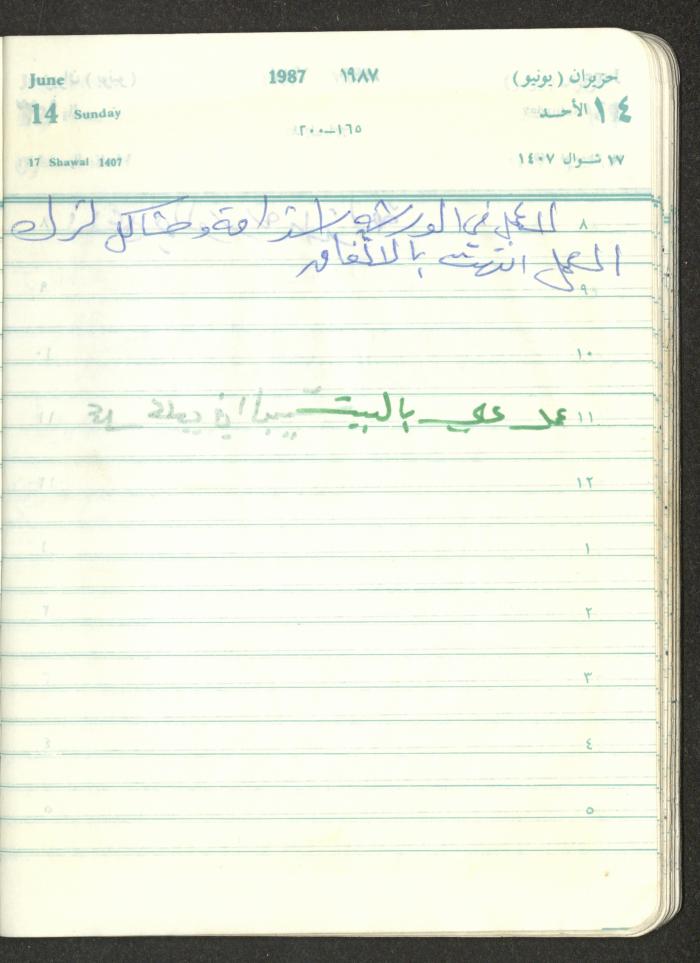 June 1987 ١٩٨٧ حزيران ( يونيو )
14 Sunday ١٤ الأحد
١٦٥—٢٠٠
17 Shawal 1407 ١٧ شوال ١٤٠٧
٨ العمل في الورشه ومشاكل لترك
العمل انتهت بالاتفاق
٩
١٠
١١ عمل علي بالبيت
١٢
١
٢
٣
٤
٥